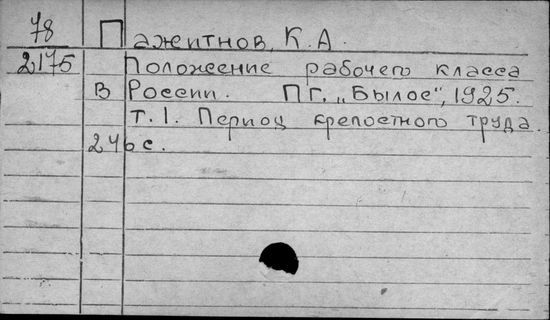 78 Пажитнов, К. А.
2175 Положение рабочего класса
в России. ПГ, „Былое", 1925.
т. 1. Период крепостного труда.
246 с.